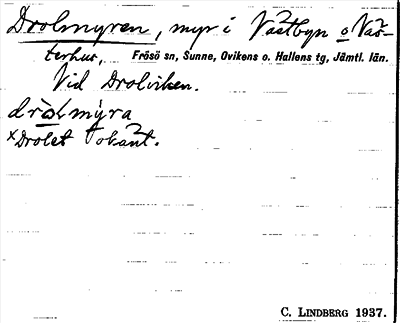 Drolmyren, myr i Västbyn o Väs-
terhus, Frösö sn, Sunne, Ovikens o. Hallens tg, Jämtl. län.
Vid Drolviken.
dròlmýra
×Drolet okänt.
C. LINDBERG 1937.